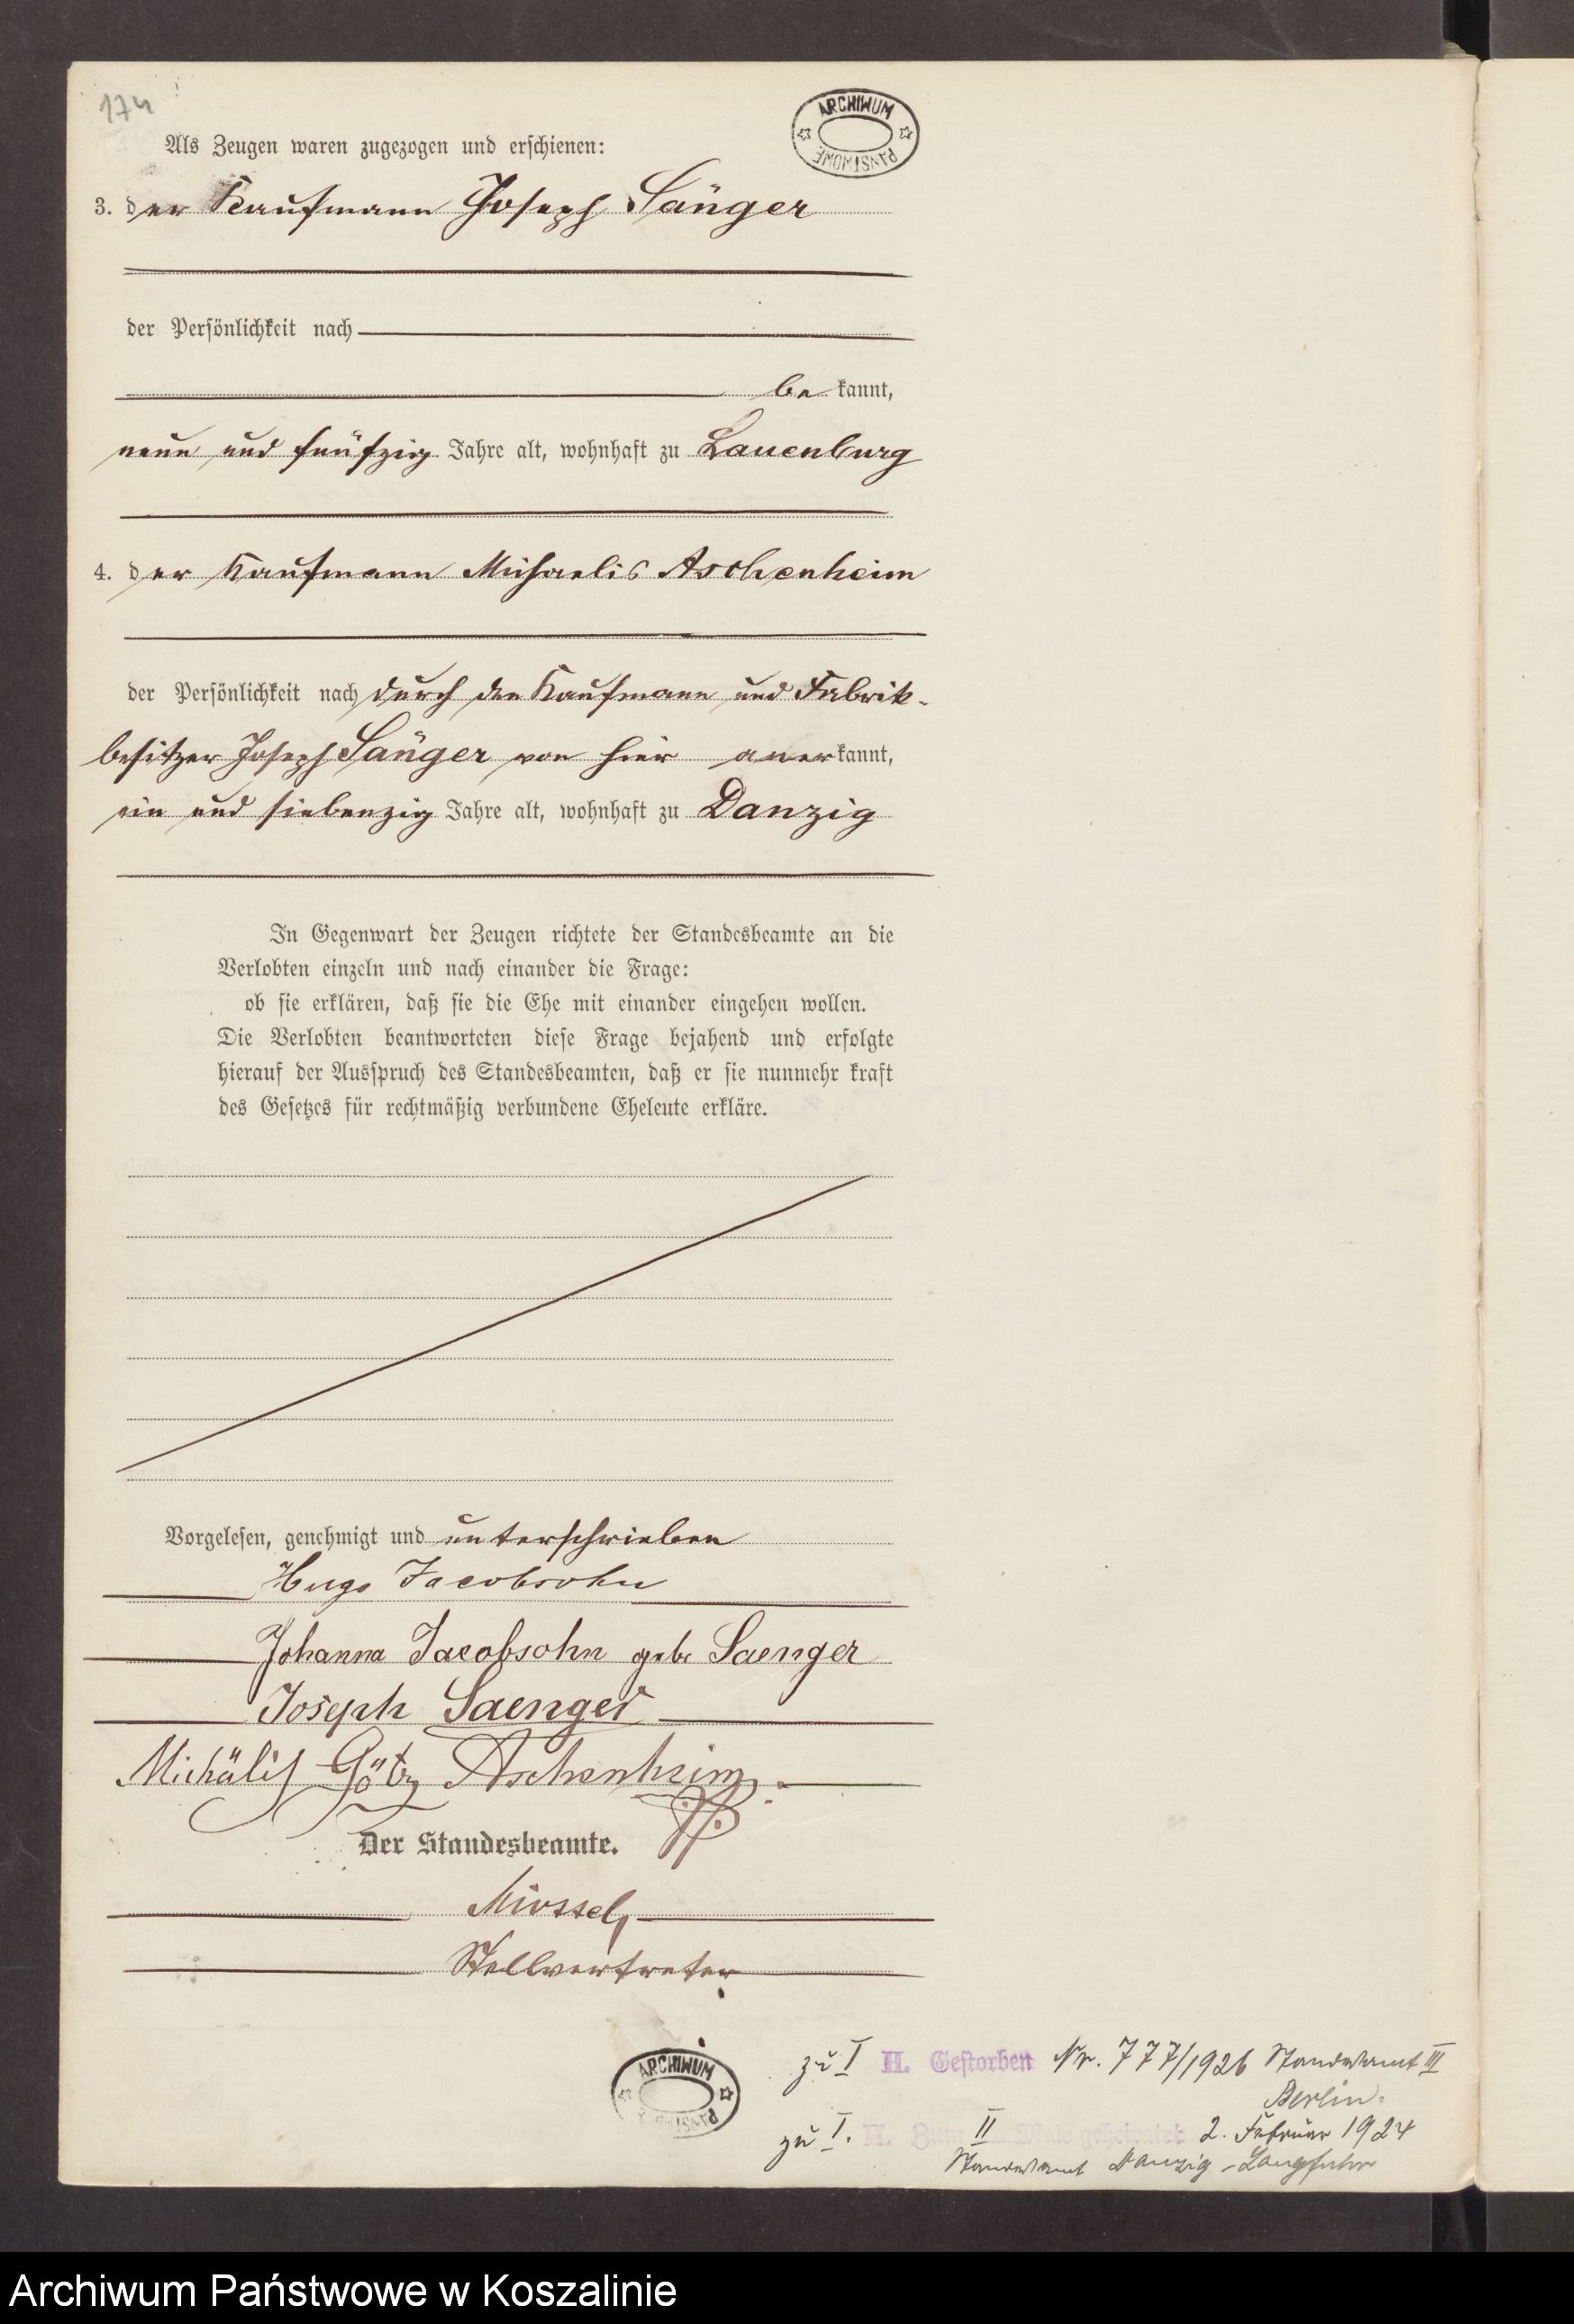 174
ARCHIWUM
PAŃSTWOWE
Als Zeugen waren zugezogen und erschienen:
3. der Kaufmann Joseph Sänger
der Persönlichkeit nach
be kannt,
neun und fünfzig Jahre alt, wohnhaft zu Lauenburg
4. der Kaufmann Michaelis Aschenheim
der Persönlichkeit nach durch den Kaufmann und Fabrik-
besitzer Joseph Sänger von hier aner kannt,
ein und siebenzig Jahre alt, wohnhaft zu Danzig
In Gegenwart der Zeugen richtete der Standesbeamte an die
Verlobten einzeln und nach einander die Frage:
ob sie erklären, daß sie die Ehe mit einander eingehen wollen.
Die Verlobten beantworteten diese Frage bejahend und erfolgte
hierauf der Ausspruch des Standesbeamten, daß er sie nunmehr kraft
des Gesetzes für rechtmäßig verbundene Eheleute erkläre.
Vorgelesen, genehmigt und unterschrieben
Hugo Jacobsohn
Johanna Jacobsohn geb. Saenger
Joseph Saenger
Michälis Götz Aschenheim.
Der Standesbeamte.
Stellvertreter
ARCHIWUM
zu I H. Gestorben Nr. 777/1926 Standesamt III
Berlin.
zu I. H. Zum II Male geheiratet 2. Februar 1924
Standesamt Danzig-Langfuhr
Archiwum Państwowe w Koszalinie